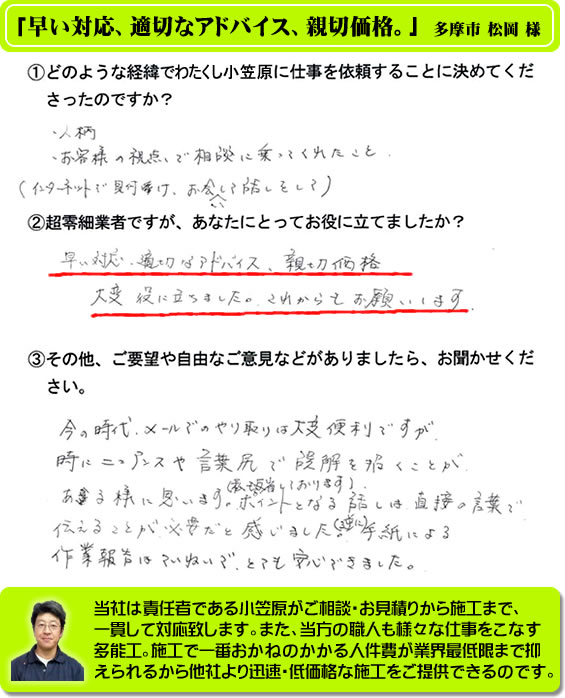 『早い対応、適切なアドバイス、親切価格。』 多摩市 松岡 様
①どのような経緯でわたくし小笠原に仕事を依頼することに決めてくだ
さったのですか？
・人柄
・お客様の視点で相談に乗ってくれたこと.
(インターネットで見付け、お会いして話しをして)
②超零細業者ですが、あなたにとってお役に立てましたか？
早い対応、適切なアドバイス、親切価格
大変 役に立ちました。これからもお願いします.
③その他、ご要望や自由なご意見などがありましたら、お聞かせくだ
さい。
今の時代、メールでのやり取りは大変便利ですが
時にニュアンスや言葉尻で誤解を招くことが
ある様に思います。ポイントとなる話しは直接の言葉で
伝えることが必要だと感じました。(逆に)手紙による
作業報告はていねいで、とても安心できました。
当社は責任者である小笠原がご相談・お見積りから施工まで、
一貫して対応致します。また、当方の職人も様々な仕事をこなす
多能工。施工で一番おかねのかかる人件費が業界最低限まで抑
えられるから他社より迅速・低価格な施工をご提供できるのです。